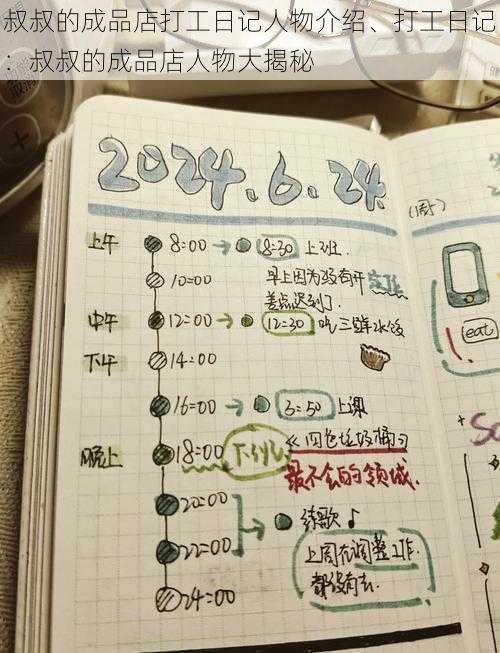 叔叔的成品店打工日记人物介绍、打工日记
：叔叔的成品店人物大揭秘
2024.6.24.
(周
上午 8:00 → 8:30 上班.
10:00 早上因为没有开
差点迟到了.
中午 12:00 → 12:30 吃三鲜水饺
下午 14:00
eat
16:00 → 3:50 上课
晚上 18:00 下午
最不会的领域.
20:00
→ 练歌♪
22:00 上周在调整工作.
都没有去.
24:00